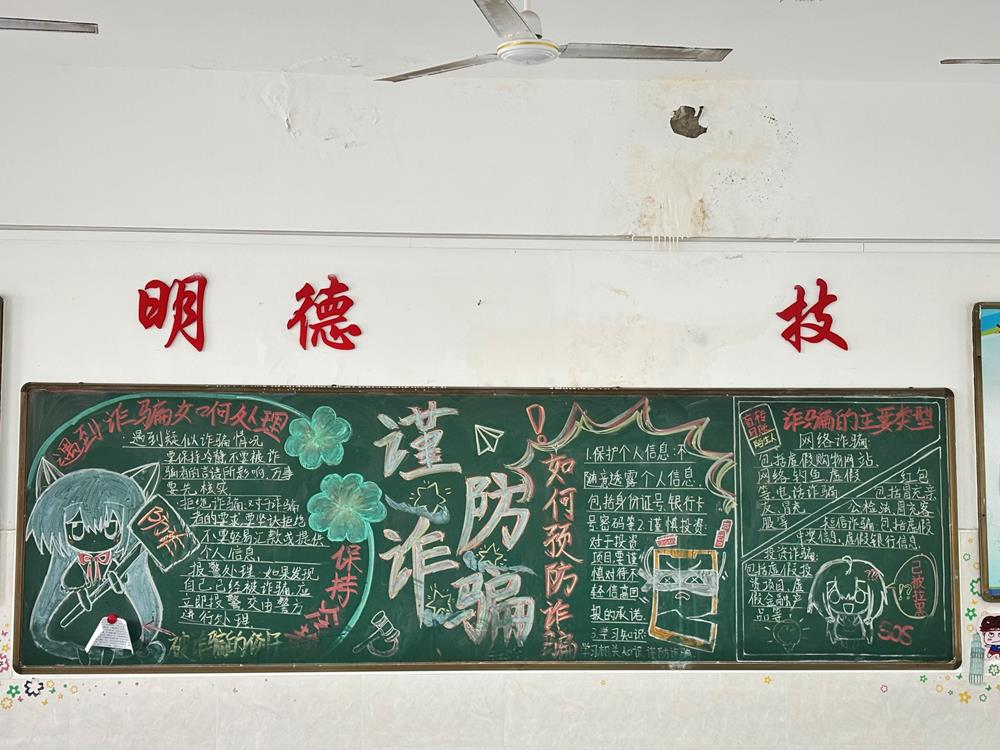 明德 技
遇到诈骗如何处理
遇到疑似诈骗情况
要保持冷静不要被诈
骗者的言语所影响,万事
要先核实
拒绝诈骗:对于诈骗
者的要求要坚决拒绝
不要轻易汇款或提供
个人信息
报警处理:如果发现
自己已经被诈骗,应
立即报警交由警方
进行处理.
防诈
保持
谨防诈骗
如何预防诈骗
1.保护个人信息:不
随意透露个人信息
包括身份证号.银行卡
号密码等2.谨慎投资:
对于投资
项目要谨
慎对待不
轻信高回
报的承诺.
3.学习知识:
学习相关知识
诈骗的主要类型
陌生人
网络诈骗:
包括虚假购物网站.
网络钓鱼.虚假
红包
等.电话诈骗
包括冒充亲
友.冒充
公检法.冒充客
服等
短信诈骗:包括虚假
中奖信息.虚假银行信息
投资诈骗:
包括虚假投
资项目.虚
假金融产
品等
已被拉黑
SOS